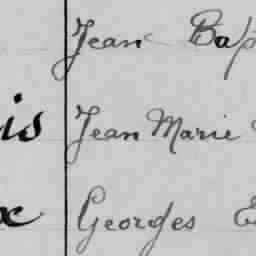 Jean Bap
is Jean Marie
x Georges E